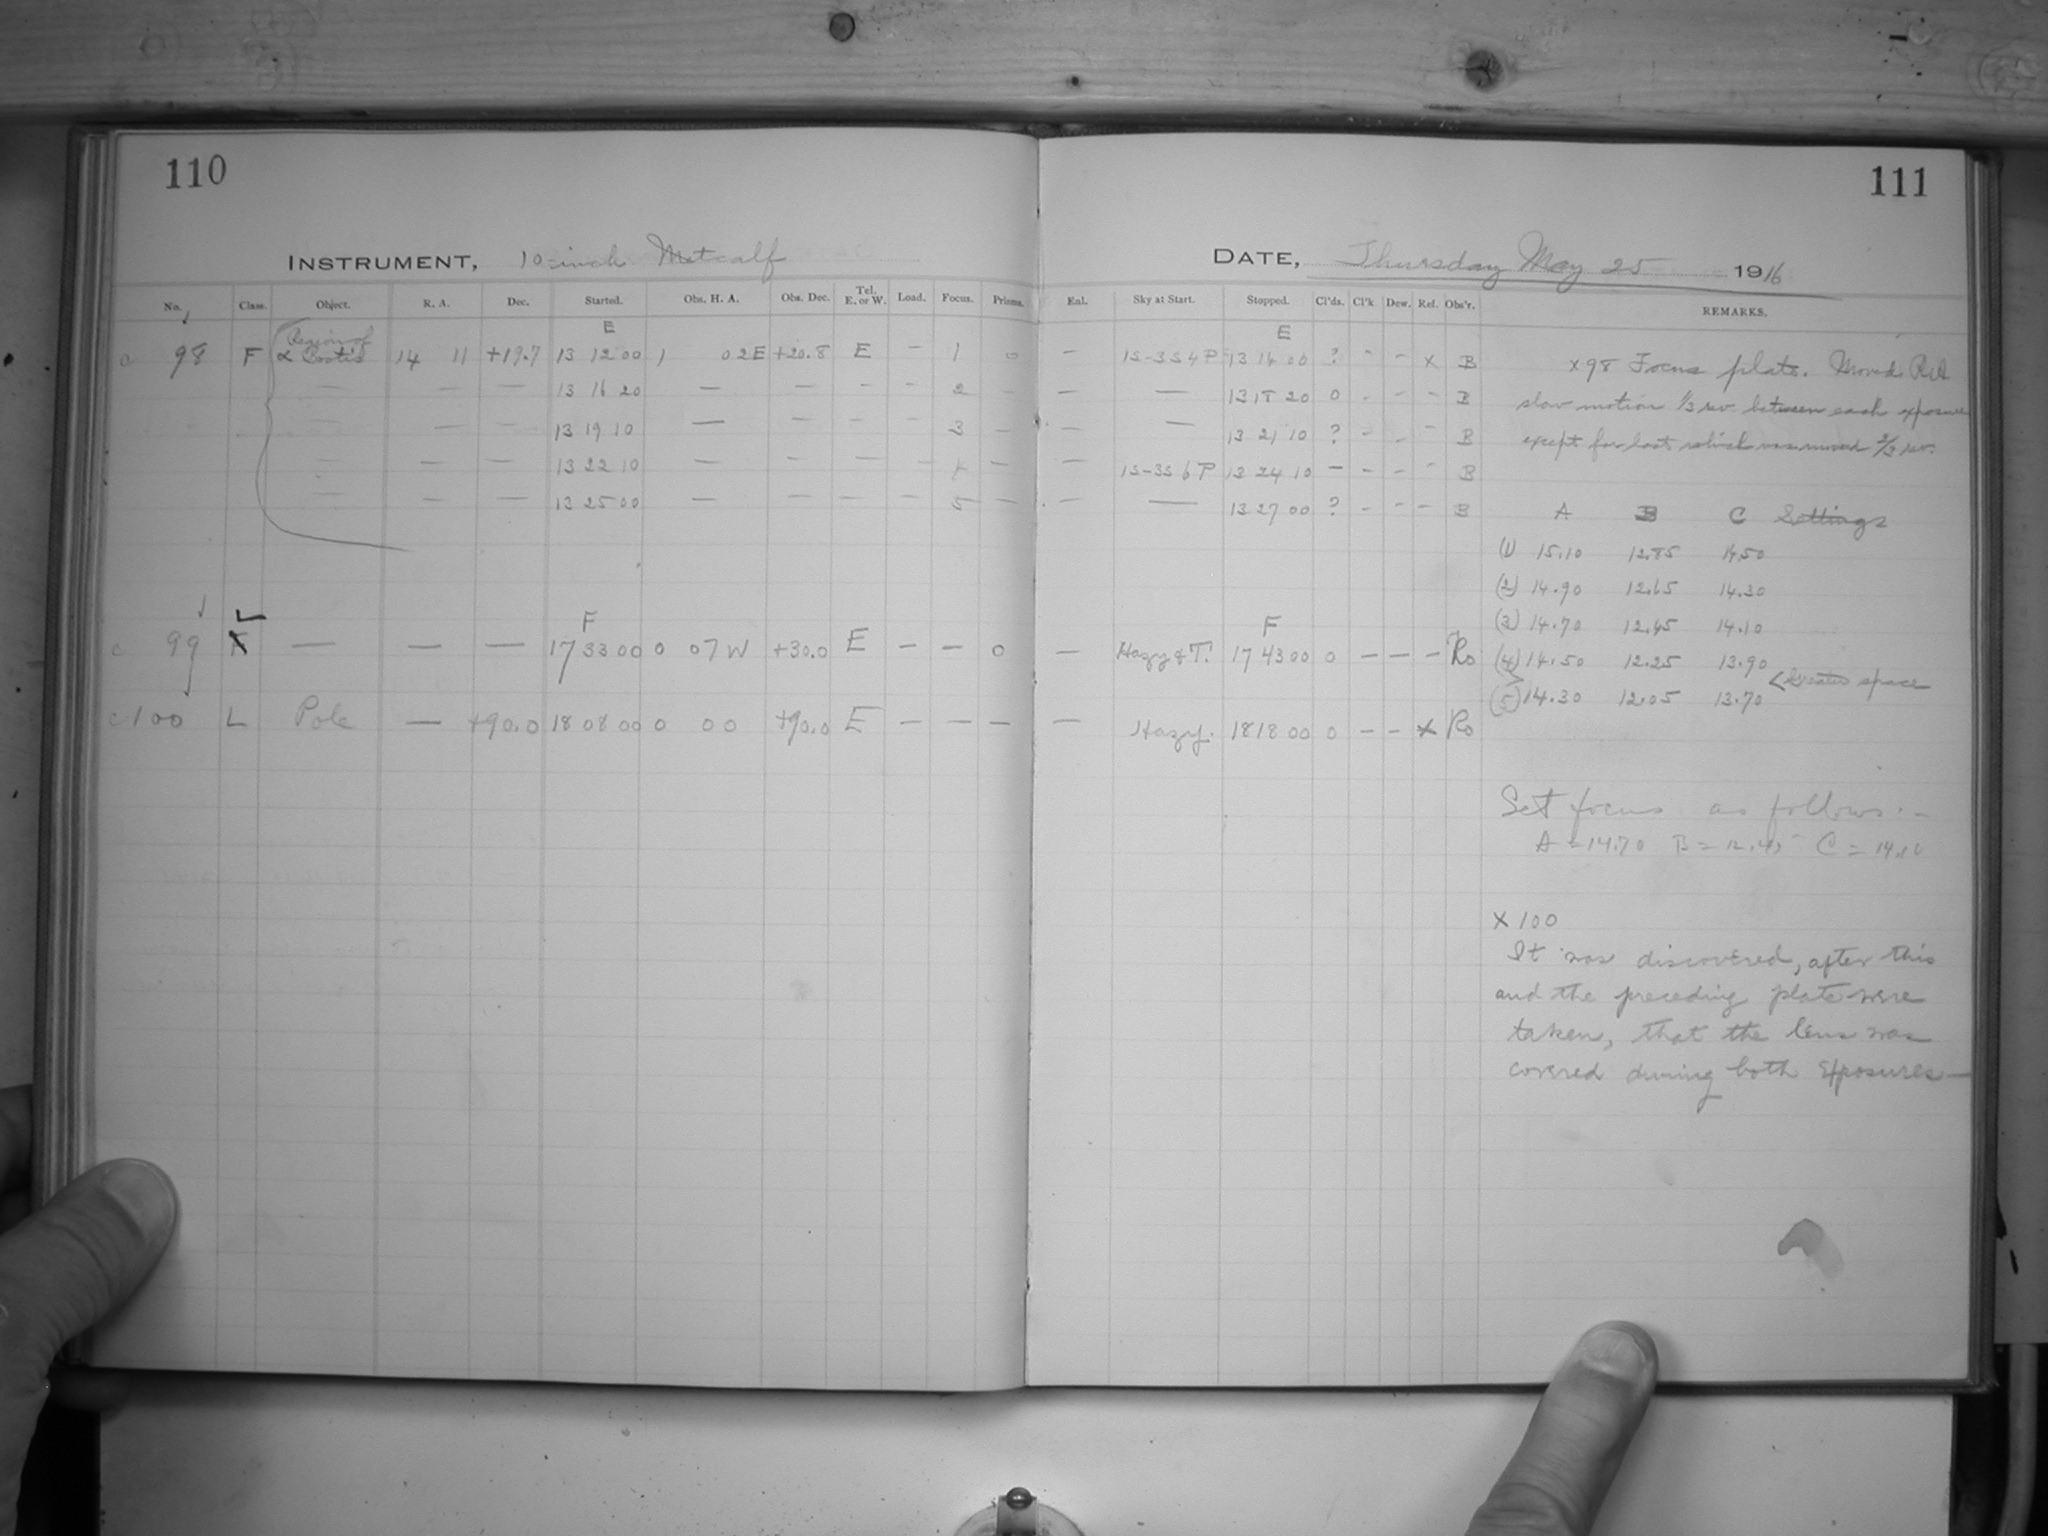 110
111
INSTRUMENT, 10-inch Metcalf
DATE, Thursday May 25 1916
No. Class. Object. R. A. Dec. Started. Obs. H. A. Obs. Dec. Tel. E. or W. Load. Focus. Prisms. Enl. Sky at Start. Stopped. Cl'ds. Cl'k Dew. Ref. Obs'r. REMARKS.
E E
Region of
c 98 F α Bootis 14 11 +19.7 13 12 00 1 02E +20.8 E — 1 0 — 1S-3S4P 13 14 00 ? - - x B
— — — 13 16 20 — — — — 2 — — — 13 18 20 0 - - - B
— — — 13 19 10 — — — — 3 — — — 13 21 10 ? - - - B
— — — 13 22 10 — — — — 4 — — 1S-3S6P 13 24 10 — - - - B
— — — 13 25 00 — — — — 5 — — — 13 27 00 ? - - - B
x98 Focus plate. Moved R.A
slow motion 1/3 rev. between each exposure
except for last which was moved 2/3 rev.
A B C Settings
(1) 15.10 12.85 14.50
(2) 14.90 12.65 14.30
(3) 14.70 12.45 14.10
(4) 14.50 12.25 13.90
< Greater space
(5) 14.30 12.05 13.70
L F F
c 99 F — — — 17 33 00 0 07W +30.0 E — — 0 — Hazy & T. 17 43 00 0 — — — Ro
c 100 L Pole — +90.0 18 08 00 0 00 +90.0 E — — — — Hazy. 18 18 00 0 — — x Ro
Set focus as follows:-
A = 14.70 B = 12.45 C = 14.10
X 100
It was discovered, after this
and the preceding plate were
taken, that the lens was
covered during both exposures—